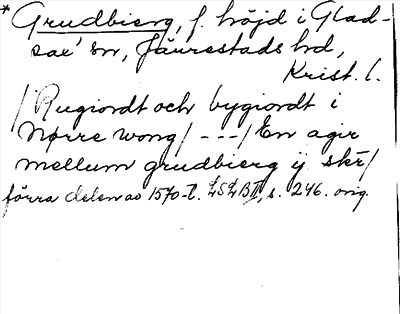 * Grudbierg, f. höjd i Glad-
sax' sn, Järrestads hd,
Krist. l.
/Rugiordt och bygiordt i
Nørre wong/ - - - /En agir
mellum grudbierg ij skr/
förra delen av 1570-t. LSLB II, s. 246. orig.